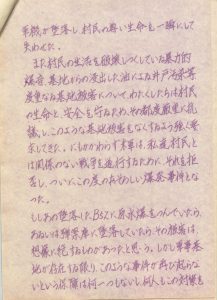 軍機が墜落し、村民の尊い生命を一瞬にして
失わせた。
また村民の生活を破壊しつくしている暴力的
爆音、基地からの流出した油による井戸汚染等
度重なる基地被害について、わたくしたちは村民
の生命と、安全を守るため、その都度厳重に抗
議し、このような基地被害をなくするよう強く要
求してきた。にもかかわらず米軍は、私達、村民と
は関係のない戦争を遂行するために、それを拒
否し、ついにこの度のおそろしい爆発事件となっ
た。
もしあの墜落した、B52に原水爆をつんでいたら、
あるいは弾薬庫に墜落していたら、その被害は、
想像に絶するものがあったと思う。しかも軍事基
地が存在する限り、このような事件が再び起らな
いという保障は何一つもないし、何んらこの対策を